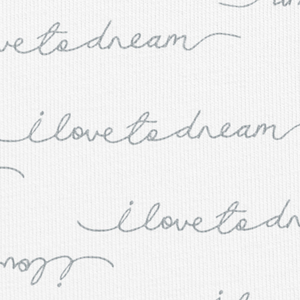 ve to dream
i love to dream
i love to dr
i lov